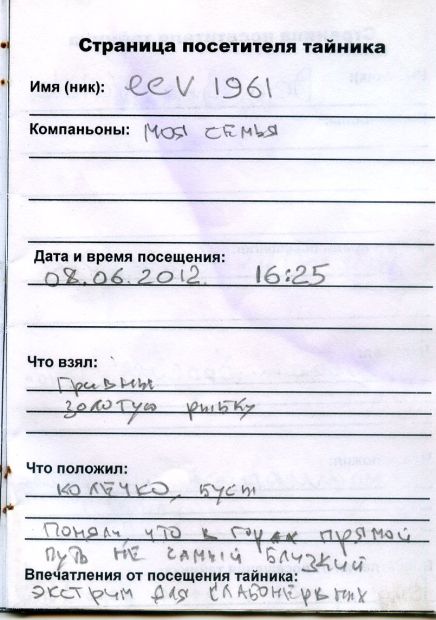 Страница посетителя тайника
Имя (ник): eev 1961
Компаньоны: моя семья
Дата и время посещения:
08.06.2012. 16:25
Что взял:
Гривны
золотую рыбку
Что положил:
колечко, бусы
Поняли, что в горах прямой
путь не самый близкий
Впечатления от посещения тайника:
экстрим для слабонервных